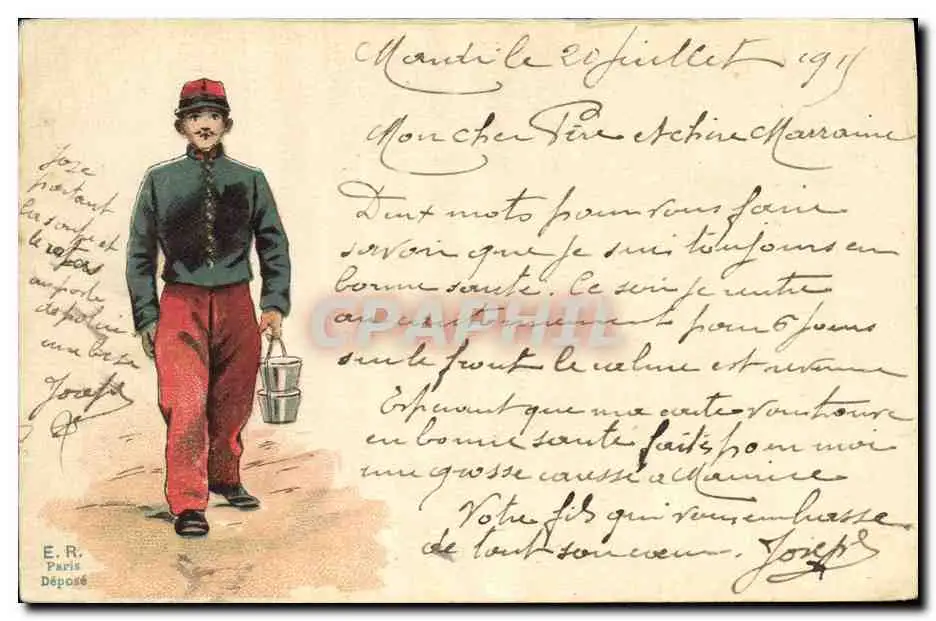 Mardi le 20 Juillet 1915
Mon cher Père et chère Marraine
Deux mots pour vous faire
savoir que je suis toujours en
bonne santé. Ce soir je rentre
au cantonnement pour 6 jours
sur le front le calme est revenu
Espérant que ma carte vous trouve
en bonne santé faites pour moi
une grosse caresse a Maurice
Votre fils qui vous embrasse
de tout son cœur. Joseph
partant
la soupe et
le repas
Joseph
CPAPHIL
E. R.
Paris
Déposé